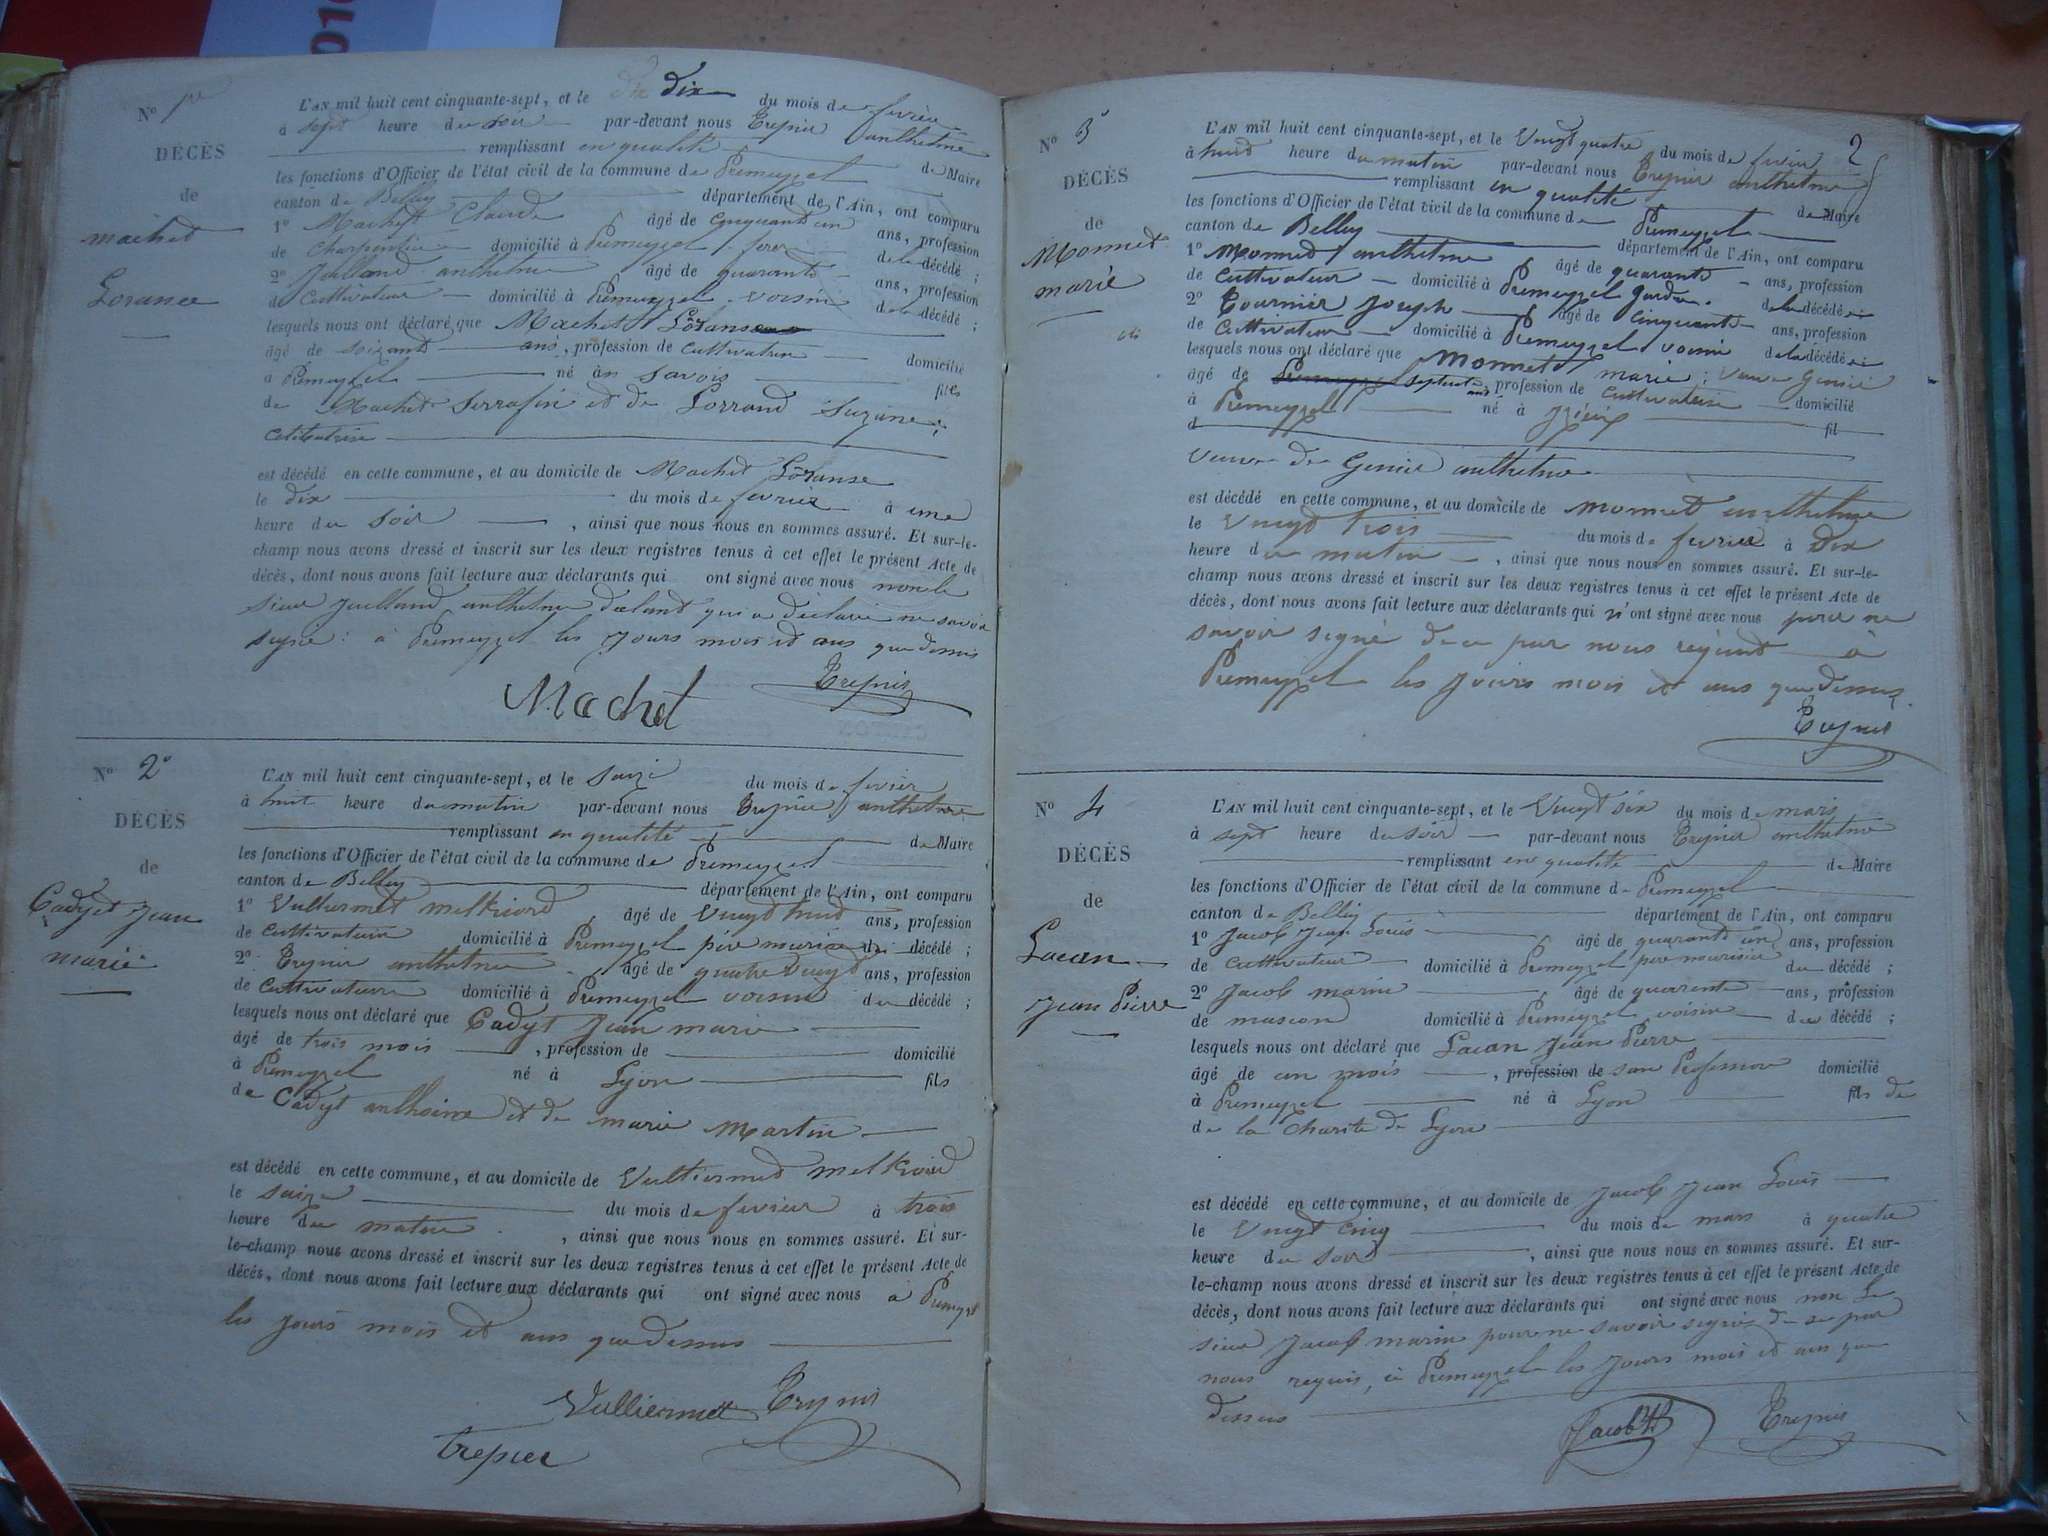 010
N° 1er
DÉCÈS
de
machet
Lorance
L'AN mil huit cent cinquante-sept, et le dix du mois de fevrier
à sept heure du soir par-devant nous Trepier anthelme
remplissant en qualité de Maire
les fonctions d'Officier de l'état civil de la commune de Premeyzel
canton de Belley département de l'Ain, ont comparu
1° Machet Claude âgé de cinquant un ans, profession
de Charpentier domicilié à Premeyzel frere de la décédé ;
2° Julland anthelme âgé de quarante ans, profession
de Cultivateur domicilié à Premeyzel voisin de la décédé ;
lesquels nous ont déclaré que Machet Loranse
âgé de soixante ans, profession de Cultivatrice domicilié
à Premeyzel né àn savois fille
de Machet Serrafin et de Lorrand Suzane ;
Celibatrise
est décédé en cette commune, et au domicile de Machet Loranse
le dix du mois de fevrier à une
heure du soir , ainsi que nous nous en sommes assuré. Et sur-le-
champ nous avons dressé et inscrit sur les deux registres tenus à cet effet le présent Acte de
décès, dont nous avons fait lecture aux déclarants qui ont signé avec nous non le
sieur Julland anthelme qui a déclaré ne savoir
signé : à Premeyzel les jours mois et ans que dessus
Machet Trepier
N° 2°
DÉCÈS
de
Cadyet jean
marie
L'AN mil huit cent cinquante-sept, et le saize du mois de fevrier
à huit heure du matin par-devant nous Trepier anthelme
remplissant en qualité de Maire
les fonctions d'Officier de l'état civil de la commune de Premeyzel
canton de Belley département de l'Ain, ont comparu
1° Vulliermet melkiord âgé de Vingt huit ans, profession
de Cultivateur domicilié à Premeyzel père nouricie du décédé ;
2° Trepier anthelme âgé de quatre Vingt ans, profession
de Cultivateur domicilié à Premeyzel voisin du décédé ;
lesquels nous ont déclaré que Cadyt Jean marie
âgé de trois mois , profession de domicilié
à Premeyzel né à Lyon fils
de Cadyt anthoine et de marie Martin
est décédé en cette commune, et au domicile de Vulliermet melkiord
le saize du mois de fevrier à trois
heure du matin , ainsi que nous nous en sommes assuré. Et sur-
le-champ nous avons dressé et inscrit sur les deux registres tenus à cet effet le présent Acte de
décès, dont nous avons fait lecture aux déclarants qui ont signé avec nous a Premeyzel
les jours mois et ans que dessus
Vulliermet Trepier
trepier
2
N° 3
DÉCÈS
de
Monnet
marie
L'AN mil huit cent cinquante-sept, et le Vingt quatre du mois de fevrier
à huit heure du matin par-devant nous Trepier anthelme
remplissant en qualité de Maire
les fonctions d'Officier de l'état civil de la commune de Premeyzel
canton de Belley département de l'Ain, ont comparu
1° Monnet anthelme âgé de quarante ans, profession
de Cultivateur domicilié à Premeyzel de la décédé
2° Tournier Joseph âgé de cinquante ans, profession
de Cultivateur domicilié à Premeyzel voisin de la décédé
lesquels nous ont déclaré que Monnet marie ; veuve Genin
âgé de Premeyzel septente ans, profession de Cultivatrise domicilié
à Premeyzel né à fil
d
veuve de Genin anthelme
est décédé en cette commune, et au domicile de Monnet anthelme
le Vingt trois du mois de fevrier à Dix
heure du matin , ainsi que nous nous en sommes assuré. Et sur-le-
champ nous avons dressé et inscrit sur les deux registres tenus à cet effet le présent Acte de
décès, dont nous avons fait lecture aux déclarants qui n'ont signé avec nous pour ne
savoir signé de ce par nous requit à
Premeyzel les jours mois et ans que dessus
Trepier
N° 4
DÉCÈS
de
Lacan
Jean Pierre
L'AN mil huit cent cinquante-sept, et le Vingt six du mois de mars
à sept heure du soir par-devant nous Trepier anthelme
remplissant en qualité de Maire
les fonctions d'Officier de l'état civil de la commune de Premeyzel
canton de Belley département de l'Ain, ont comparu
1° Jacob Jean Louis âgé de quarante un ans, profession
de Cultivateur domicilié à Premeyzel père nouricie du décédé ;
2° Jacob marin âgé de quarente ans, profession
de mascon domicilié à Premeyzel voisin du décédé ;
lesquels nous ont déclaré que Lacan Jean Pierre
âgé de un mois , profession de san Profession domicilié
à Premeyzel né à Lyon fils de
de la Charité de Lyon
est décédé en cette commune, et au domicile de Jacob Jean Louis
le Vingt cinq du mois de mars à quatre
heure du soir , ainsi que nous nous en sommes assuré. Et sur-
le-champ nous avons dressé et inscrit sur les deux registres tenus à cet effet le présent Acte de
décès, dont nous avons fait lecture aux déclarants qui ont signé avec nous non le
sieur Jacob marin pour ne savoir signé de ce par
nous requis, à Premeyzel les jours mois et ans que
dessus
Jacob Trepier